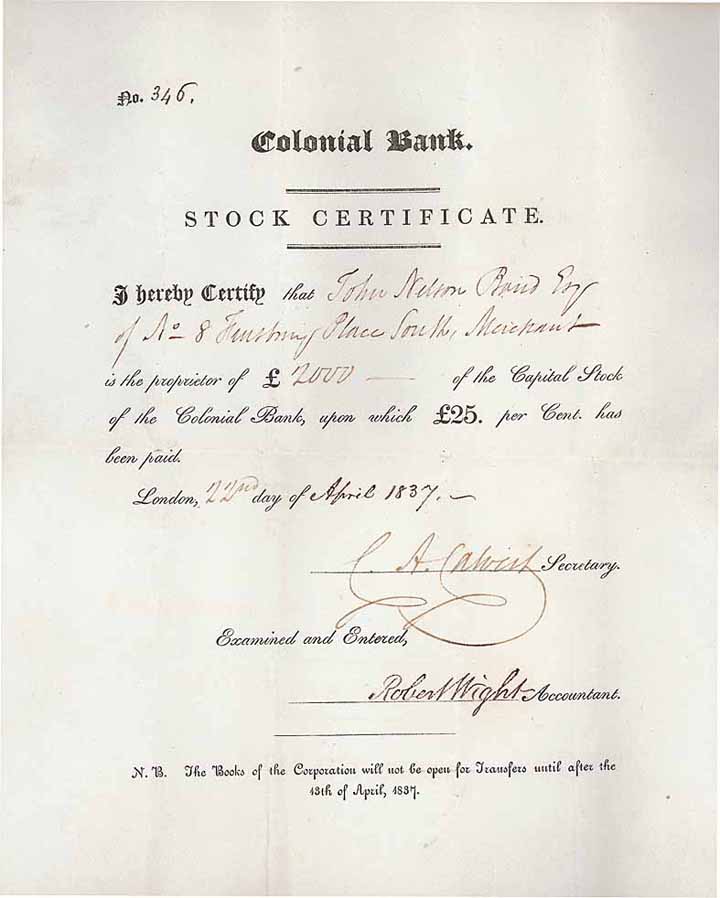 No. 346.
Colonial Bank.
STOCK CERTIFICATE.
I hereby Certify that John Nelson Baird Esq
of No 8 Finsbury Place South, Merchant
is the proprietor of £ 2000 — of the Capital Stock
of the Colonial Bank, upon which £25. per Cent. has
been paid.
London, 22nd day of April 1837. —
C. A. Calvert Secretary.
Examined and Entered,
Robert Wight Accountant.
N. B. The Books of the Corporation will not be open for Transfers until after the
13th of April, 1837.